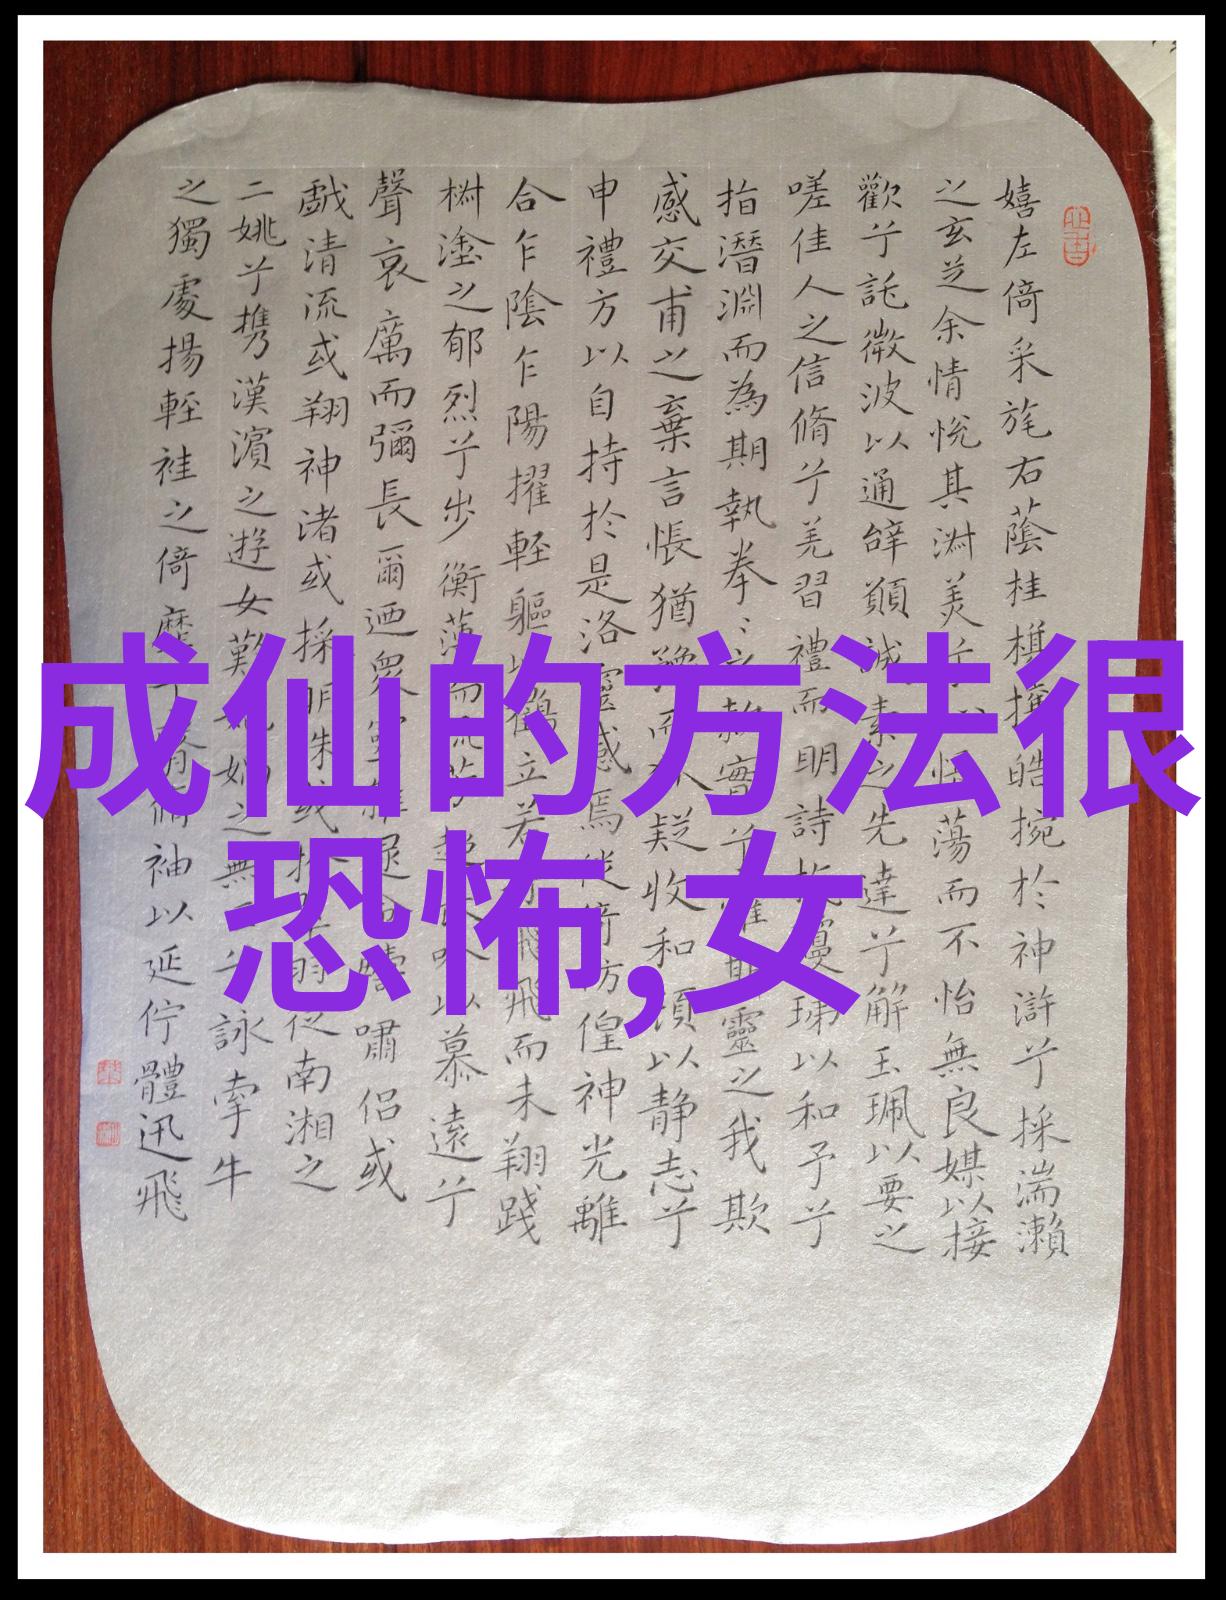 嬉左倚采旄右蔭桂旗攘皓捥於神滸兮採湍瀨
之玄芝余情悅其淑美兮 怪蕩而不怡無良媒以接
歡兮託微波以通辝願誠素之先達兮解玉珮以要之
嗟佳人之信脩兮羌習禮而明詩 瓊珶以和予兮
指潛淵而為期執拳〻之 實兮 靈之我欺
感交甫之棄言悵猶豫而 疑收和 以静志兮
申禮方以自持於是洛靈感焉徙倚彷偟神光離
合乍陰乍陽擢輕軀以鶴立若 飛而未翔踐
樹塗之郁烈兮步衡薄而流芳超長吟以慕遠兮
聲哀厲而彌長爾迺衆靈雜遝命 嘯侶或
戲清流或翔神渚或採明珠或拾 羽從南湘之
二姚兮携漢濱之遊女歎 之無 兮詠牽牛
之獨處揚輕袿之倚靡兮 脩袖以延佇體迅飛
成仙的方法很
恐怖,女